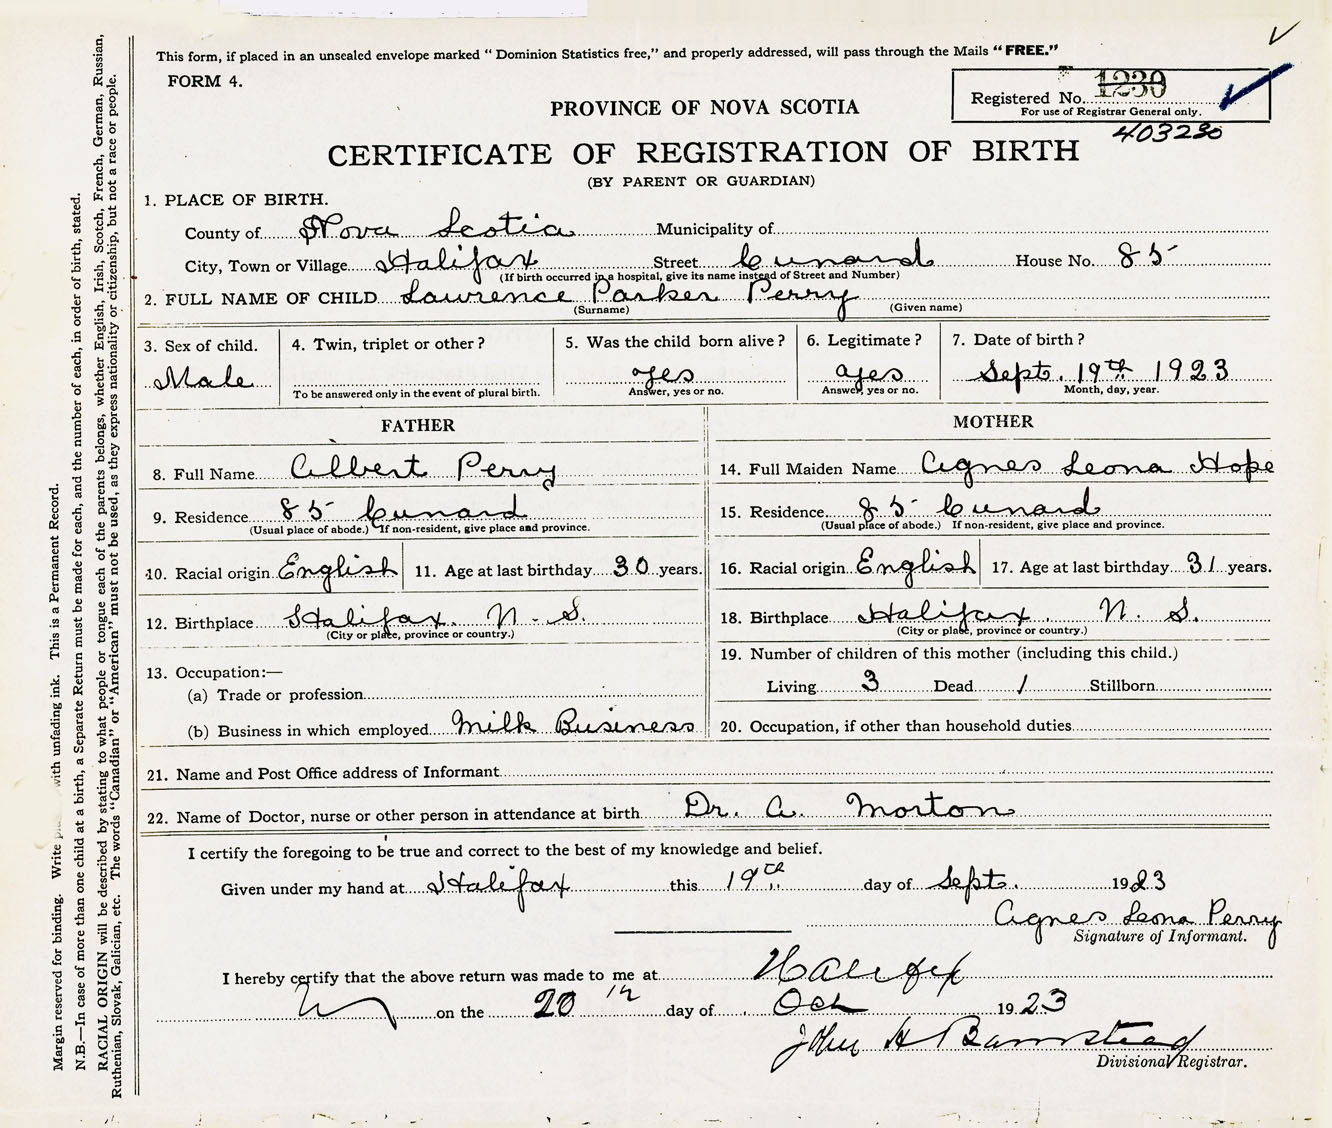 This form, if placed in an unsealed envelope marked "Dominion Statistics free," and properly addressed, will pass through the Mails "FREE."
FORM 4.
PROVINCE OF NOVA SCOTIA
Registered No. 1230
For use of Registrar General only.
403230
CERTIFICATE OF REGISTRATION OF BIRTH
(BY PARENT OR GUARDIAN)
1. PLACE OF BIRTH.
County of Nova Scotia Municipality of
City, Town or Village Halifax Street Cunard House No. 85
(If birth occurred in a hospital, give its name instead of Street and Number)
2. FULL NAME OF CHILD Lawrence Parker Perry
(Surname) (Given name)
3. Sex of child. 4. Twin, triplet or other? 5. Was the child born alive? 6. Legitimate? 7. Date of birth?
Male yes yes Sept. 19th 1923
To be answered only in the event of plural birth. Answer, yes or no. Answer, yes or no. Month, day, year.
FATHER MOTHER
8. Full Name Albert Perry 14. Full Maiden Name Agnes Leona Hope
9. Residence 85 Cunard 15. Residence 85 Cunard
(Usual place of abode.) If non-resident, give place and province. (Usual place of abode.) If non-resident, give place and province.
10. Racial origin English 11. Age at last birthday 30 years. 16. Racial origin English 17. Age at last birthday 31 years.
12. Birthplace Halifax. N. S. 18. Birthplace Halifax. N. S.
(City or place, province or country.) (City or place, province or country.)
13. Occupation:— 19. Number of children of this mother (including this child.)
(a) Trade or profession Living 3 Dead 1 Stillborn
(b) Business in which employed Milk Business 20. Occupation, if other than household duties
21. Name and Post Office address of Informant
22. Name of Doctor, nurse or other person in attendance at birth Dr. A. Morton
I certify the foregoing to be true and correct to the best of my knowledge and belief.
Given under my hand at Halifax this 19th day of Sept. 1923
Agnes Leona Perry
Signature of Informant.
I hereby certify that the above return was made to me at Halifax
on the 20th day of Oct 1923
John H Barnstead
Divisional Registrar.
Margin reserved for binding. Write with unfading ink. This is a Permanent Record.
N.B.—In case of more than one child at a birth, a Separate Return must be made for each, and the number of each, in order of birth, stated.
RACIAL ORIGIN will be described by stating to what people or tongue each of the parents belongs, whether English, Irish, Scotch, French, German, Russian,
Ruthenian, Slovak, Galician, etc. The words "Canadian" or "American" must not be used, as they express nationality or citizenship, but not a race or people.